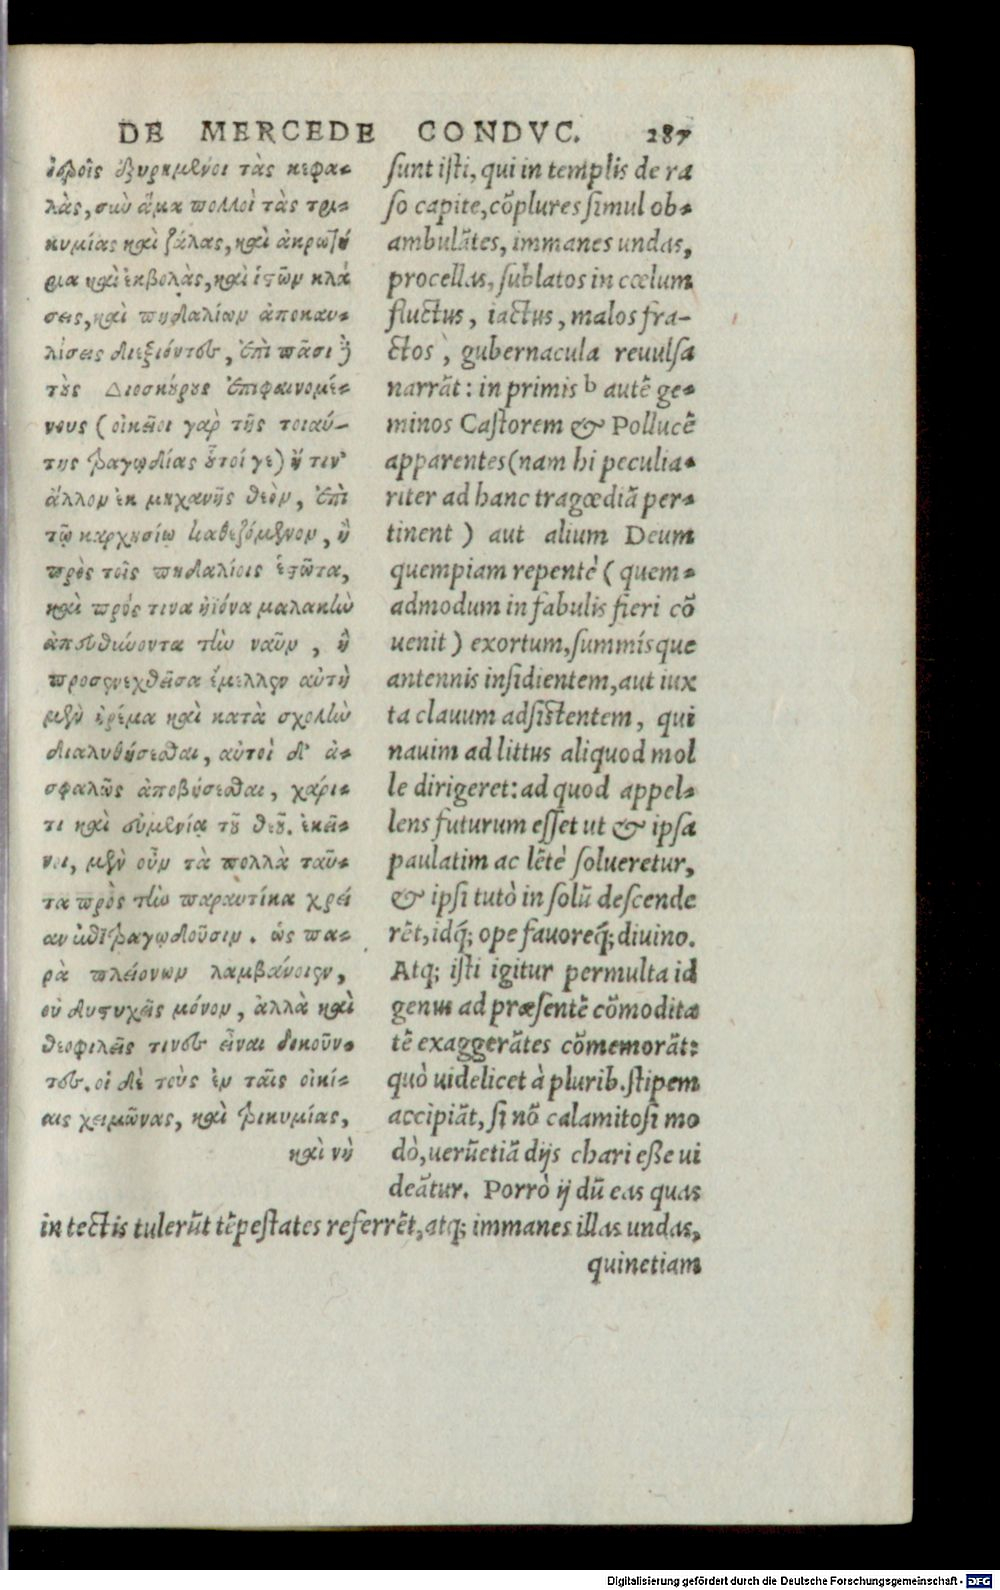 DE MERCEDE CONDVC. 287
ἱεροῖς ἐξυρημένοι τὰς κεφα-
λὰς, σὺν ἅμα πολλοὶ τὰς τρι-
κυμίας καὶ ζάλας, καὶ ἀκρωτή
ρια καὶ ἐκβολὰς, καὶ ἱστῶν κλά
σεις, καὶ πηδαλίων ἀποκαυ-
λίσεις διεξιόντες, ἐπὶ πᾶσι δὲ
τοὺς Διοσκούρους ἐπιφαινομέ-
νους (οἰκεῖοι γὰρ τῆς τοιαύ-
της τραγῳδίας οὗτοί γε) ἤ τιν'
ἄλλον ἐκ μηχανῆς θεὸν, ἐπὶ
τῷ καρχησίῳ καθεζόμενον, ἢ
πρὸς τοῖς πηδαλίοις ἑστῶτα,
καὶ πρός τινα ἠϊόνα μαλακὴν
ἀπευθύνοντα τὴν ναῦν, ᾗ
προσενεχθεῖσα ἔμελλεν αὐτὴ
μὲν ἠρέμα καὶ κατὰ σχολὴν
διαλυθήσεσθαι, αὐτοὶ δ' ἀ-
σφαλῶς ἀποβήσεσθαι, χάρι-
τι καὶ εὐμενίᾳ τοῦ θεοῦ. ἐκεῖ-
νοι, μὲν οὖν τὰ πολλὰ ταῦ-
τα πρὸς τὴν παραυτίκα χρεί
αν ἐπιτραγῳδοῦσιν. ὡς πα-
ρὰ πλειόνων λαμβάνοιεν,
οὐ δυστυχεῖς μόνον, ἀλλὰ καὶ
θεοφιλεῖς τινες εἶναι δοκοῦν-
τες. οἱ δὲ τοὺς ἐν ταῖς οἰκί-
αις χειμῶνας, καὶ τρικυμίας,
καὶ νὴ
sunt isti, qui in templis de ra
so capite, cõplures simul ob-
ambulãtes, immanes undas,
procellas, sublatos in cœlum
fluctus, iactus, malos fra-
ctos, gubernacula reuulsa
narrãt: in primis b autẽ ge-
minos Castorem & Pollucẽ
apparentes (nam hi peculia-
riter ad hanc tragœdiã per-
tinent) aut alium Deum
quempiam repentè (quem-
admodum in fabulis fieri cõ
uenit) exortum, summísque
antennis insidientem, aut iux
ta clauum adsistentem, qui
nauim ad littus aliquod mol
le dirigeret: ad quod appel-
lens futurum esset ut & ipsa
paulatim ac lẽtè solueretur,
& ipsi tutò in solũ descende
rẽt, idq́; ope fauoreq́; diuino.
Atq; isti igitur permulta id
genus ad præsentẽ cõmodita
tẽ exaggerãtes cõmemorãt:
quò uidelicet à plurib. stipem
accipiãt, si nõ calamitosi mo
dò, uerũetiã dijs chari eße ui
deãtur. Porrò ij dũ eas quas
in tectis tulerũt tẽpestates referrẽt, atq; immanes illas undas,
quinetiam
Digitalisierung gefördert durch die Deutsche Forschungsgemeinschaft - DFG